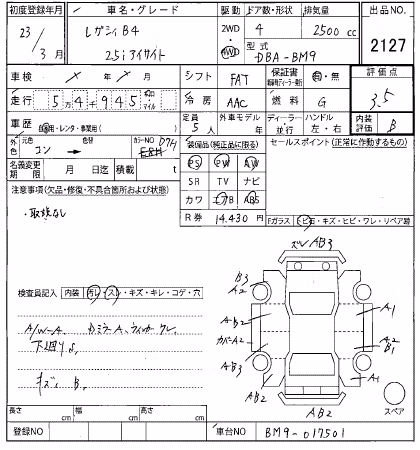 初度登録年月 車名・グレード 駆動 ドア数・形状 排気量 出品NO.
23/3月 レガシィB4 2WD 4WD 4 2500cc 2127
25i アイサイト 型式 DBA-BM9
車検 / 年 / 月 シフト FAT 保証書 有・無 評価点
走行 5万4千945 キロ マイル 冷房 AAC 燃料 G 3.5
車歴 自家用・レンタ・事業用( ) 定員 5人 外車モデル 年 ディーラー・並行 ハンドル 左・右 内装評価 B
外色 元色 コン 色替 カラーNO D4H 装備品(純正品に限る) セールスポイント(正常に作動するもの)
名義変更期限 月 日迄 積載量 t PS PW AW
注意事項(欠品・修復・不具合箇所および状態) SR TV ナビ
・取説なし カワ エアB ABS
R券 14,430円 Fガラス トビ石・キズ・ヒビ・ワレ・リペア跡
ズレ AB3
検査員記入 内装 汚レ・スレ・キズ・キレ・コゲ・穴 B3 A2
A/W-A Dミラー A、ウィンカー ワレ A-B2 A1
下廻りS カバーA2 A2 B1
キズ B AB3 A1
AB2 AB2 スペア
長さ cm 幅 cm 高さ cm
登録NO 車台NO BM9-017501